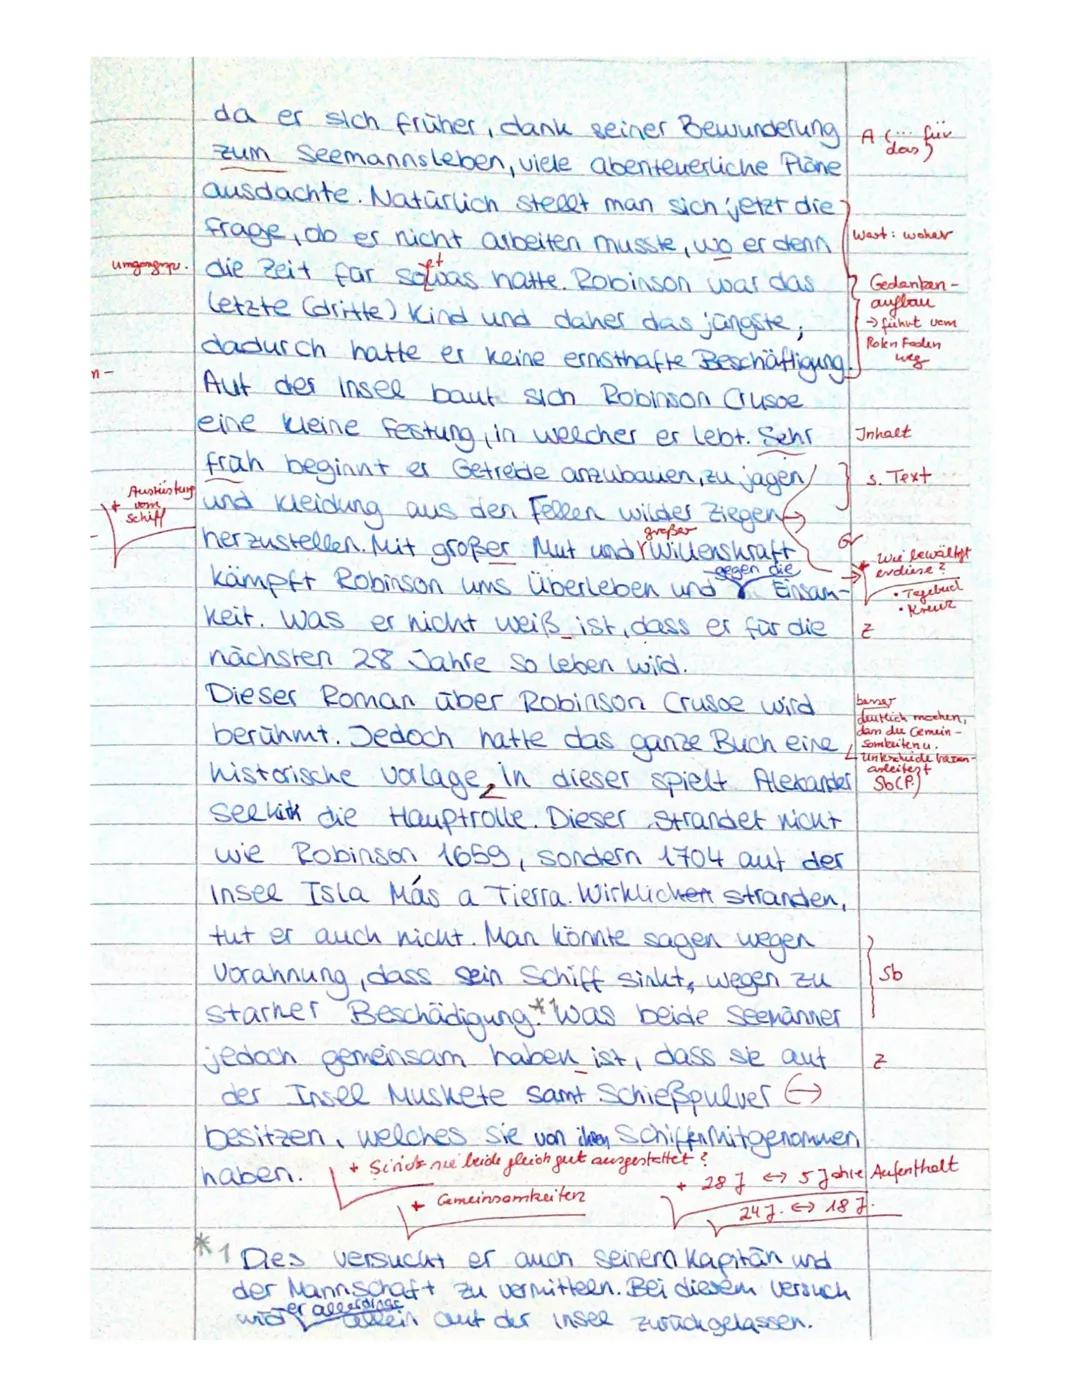 da er sich früher, dank seiner Bewunderung
A (... für das)
zum Seemannsleben, viele abenteuerliche Pläne
ausdachte. Natürlich stellt man sich jetzt die
Frage, ob er nicht arbeiten musste, wo er denn
Wort: woher
umgangsspr.
die Zeit für sowas hatte. Robinson war das
et
Gedanken-
aufbau
→ führt vom
Roten Faden
weg
letzte (dritte) Kind und daher das jüngste,
dadurch hatte er keine ernsthafte Beschäftigung.
n-
Auf der Insel baut sich Robinson Crusoe
eine kleine Festung, in welcher er lebt. Sehr
Inhalt
früh beginnt er Getreide anzubauen, zu jagen
s. Text
Ausrüstung
+ vom
Schiff
und Kleidung aus den Fellen wilder Ziegen
großer
herzustellen. Mit großer Mut und Willenskraft
Gr
+ Wie bewältigt
er diese?
• Tagebuch
• Kreuz
gegen die
kämpft Robinson ums Überleben und Einsam-
keit. Was er nicht weiß ist, dass er für die
Z
nächsten 28 Jahre so leben wird.
Dieser Roman über Robinson Crusoe wird
besser
deutlich machen,
dass du Gemein-
samkeiten u.
Unterschiede
Sb(P.)
berühmt. Jedoch hatte das ganze Buch eine
historische Vorlage, in dieser spielt Alexander
Selkirk die Hauptrolle. Dieser strandet nicht
wie Robinson 1659, sondern 1704 auf der
Insel Isla Más a Tierra. Wirklichen stranden,
tut er auch nicht. Man könnte sagen wegen
Vorahnung, dass sein Schiff sinkt, wegen zu
Sb
starker Beschädigung.*1 Was beide Seemänner
jedoch gemeinsam haben ist, dass sie auf
Z
der Insel Muskete samt Schießpulver
besitzen, welches sie von ihren Schiffen mitgenommen
haben.
+ Sind sie beide gleich gut ausgestattet?
+ Gemeinsamkeiten
+ 28 J ↔ 5 Jahre Aufenthalt
24 J. ↔ 18 J.
*1 Dies versucht er auch seinem Kapitän und
der Mannschaft zu vermitteln. Bei diesem Versuch
er allerdings
wird allein auf der Insel zurückgelassen.